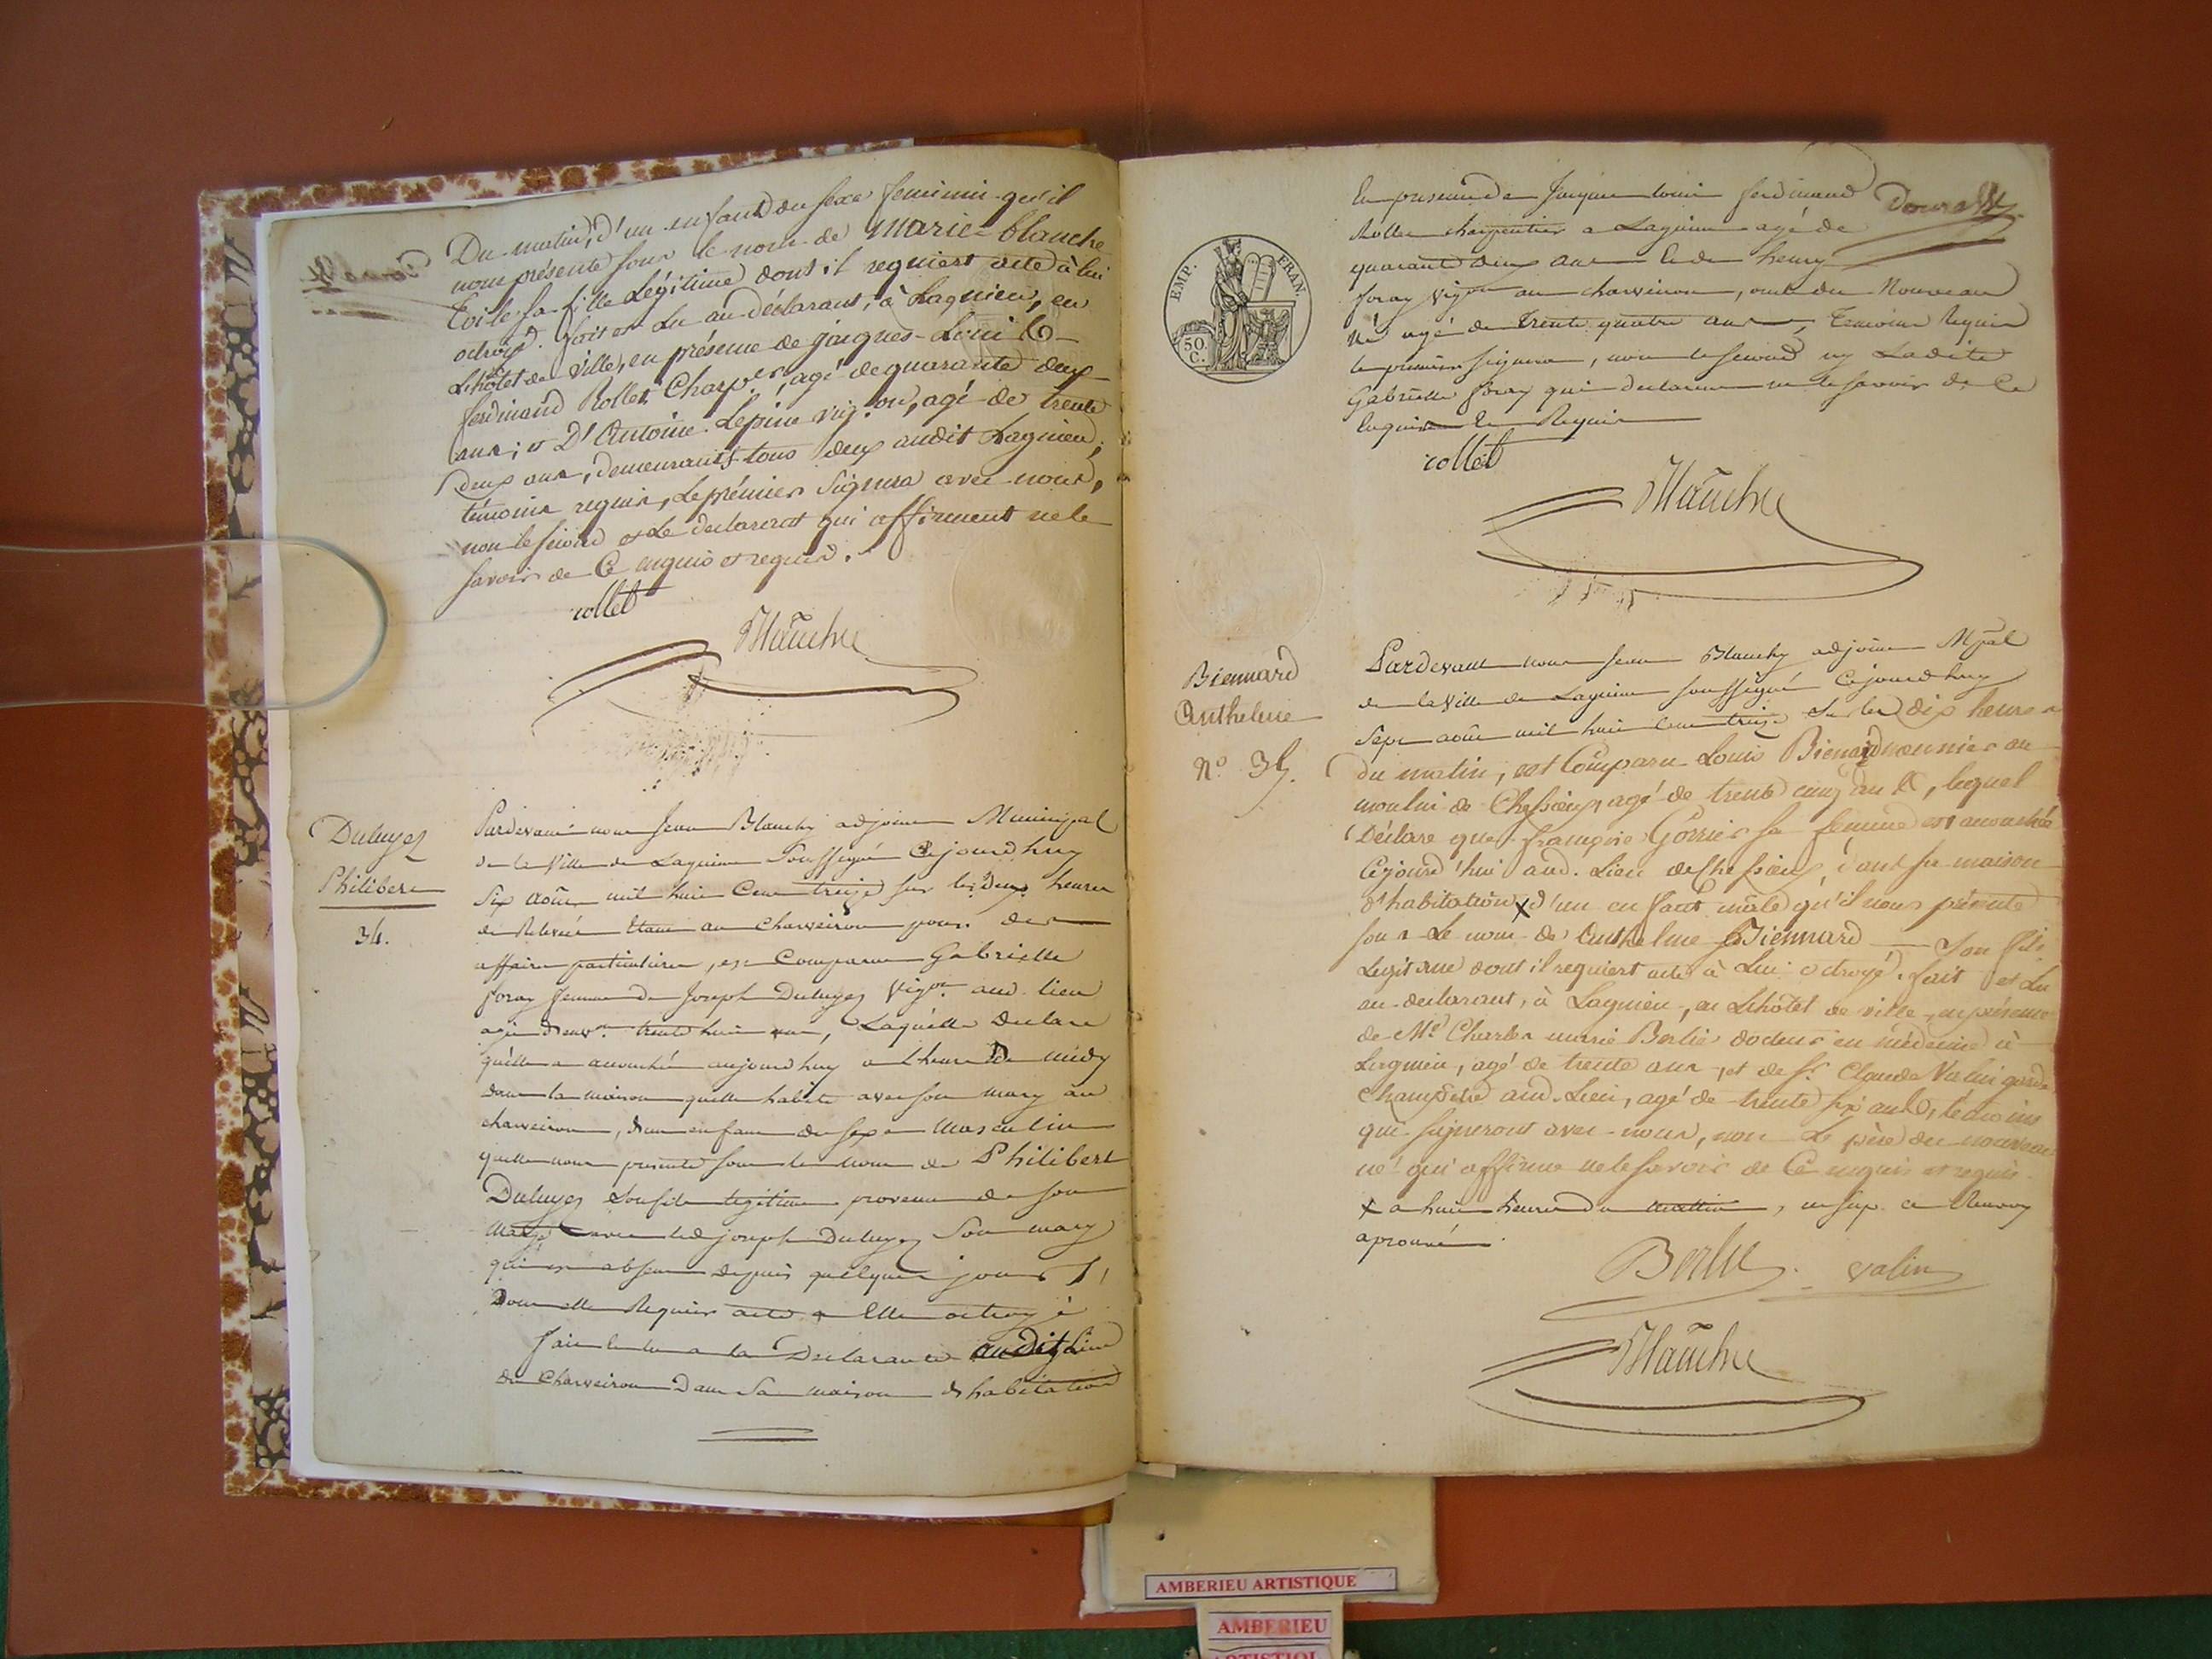 Du matin, d'un enfant du sexe feminin qu'il
nous présente sous le nom de marie-blanche
sa fille Légitime dont il requiert acte à lui
octroyé. fait et Lu au déclarant, à Lagnieu, en
Lhôtel de Ville, en présence de jacques-Louis
ferdinand Rollet Charp.er, agé de quarante deux
ans; et D'Antoine Lépine vig.on, agé de trente
deux ans, demeurants tous deux audit Lagnieu,
témoins requis, Le prémier Signera avec nous,
non le second et Le declarant qui affirment ne le
savoir de Ce enquis et requis.
rollet
Blanchy
Duluyez
Philibert
34.
Pardevant nous Jean Blanchy adjoint Municipal
de la Ville de Lagnieu Soussigné Cejourdhuy
Six août mil huit Cent treize sur les Deux heures
de Relevée Etant au Charveiron pour des
affaires particulieres, est Comparue Gabrielle
foray femme de Joseph Duluyez Vig.on aud. lieu
agée d'env.on trente huit ans, Laquelle Declare
qu'elle a accouchée aujourdhuy a l'heure De midy
dans la maison quelle habite avec son mary au
charveiron, d'un enfant du sexe Masculin
quelle nous presente sous le nom de Philibert
Duluyez son fils legitime provenu de son
avec led joseph Duluyez Son mary
qui est absent depuis quelques jours
Dont elle Requier acte a Elle octroyé
fait et lu a la Declarante audit Lieu
du Charveiron Dans Sa maison d'habitation
EMP. FRAN.
50 C.
En presence de Jacques louis ferdinand
Rollet charpentier a Lagnieu agé de
quarante deux ans Et de henry
foray vig.on au charveiron, oncle du Nouveau
né agé de trente quatre ans, Temoins Requis
le premier Signera, non le second ny Ladite
Gabrielle foray qui declarent ne le savoir de Ce
Enquis et Requis
rollet
Blanchy
Biennard
Anthelme
N.o 35.
Pardevant nous Jean Blanchy adjoint M.pal
de la Ville de Lagnieu soussigné Cejourdhuy
Sept août mil huit Cent treize Sur les dix heures
du matin, est Comparu Louis Bienard meunier au
moulin de Chessieux, agé de trente cinq ans, lequel
Déclare que françoise Gorrier sa femme est accouchée
Cejourd'hui aud. Lieu de Chessieux, dans sa maison
d'habitation x d'un enfant mâle qu'il nous présente
sous Le nom de Anthelme Biennard Son fils
Legitime dont il requiert acte à Lui octroyé. fait et Lu
au declarant, à Lagnieu, en Lhôtel de ville, en présence
de M.r Charles marie Berlie docteur en médecine à
Lagnieu, agé de trente ans, et de Sr. Claude Valin garde
champêtre aud. Lieu, agé de trente six ans, témoins
qui signeront avec nous, non Le père du nouveau
né qui affirme ne le savoir de Ce enquis et requis.
x a huit heures du mattin, ce Renvoy
aprouvé.
Berlie valin
Blanchy
AMBERIEU ARTISTIQUE
AMBERIEU